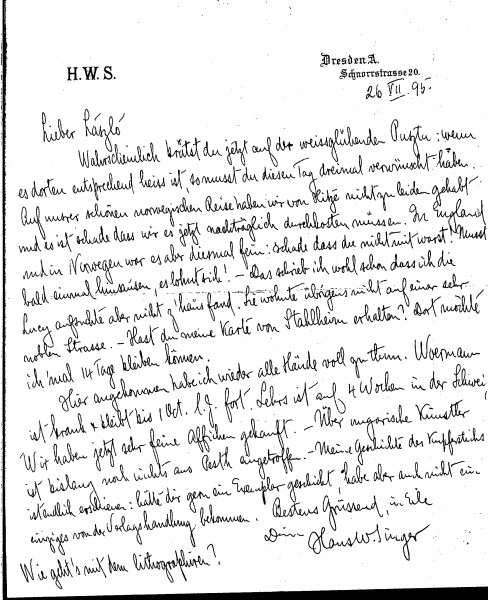 H.W.S.
Dresden A.
Schnorrstrasse 20.
26 VII. 95.
Lieber László
Wahrscheinlich brätst du jetzt auf der weissglühenden Puszta: wenn
es dorten entsprechend heiss ist, so musst du diesen Tag dreimal verwünscht haben.
Auf unsrer schönen norwegischen Reise haben wir von Hitze nicht zu leiden gehabt
und es ist schade dass wir es jetzt nachträglich durchkosten müssen. In England
und in Norwegen war es aber diesmal fein: schade dass du nicht mit warst! Musst
bald einmal hinsausen, es lohnt sich! – Das schrieb ich wohl schon dass ich die
Lucy aufsuchte aber nicht z'haus fand. Sie wohnte übrigens nicht auf einer sehr
noblen Strasse. – Hast du meine Karte von Stahlheim erhalten? Dort möchte
ich 'mal 14 Tage bleiben können.
Hier angekommen habe ich wieder alle Hände voll zu thun. Woermann
ist krank & bleibt bis 1 Oct. l. J. fort. Lehrs ist auf 4 Wochen in der Schweiz
Wir haben jetzt sehr feine Affichen gekauft. – Über ungarische Künstler
ist bislang noch nichts aus Pesth eingetroffen. – Meine Geschichte des Kupferstichs
ist endlich erschienen: hätte dir gern ein Exemplar geschickt, habe aber auch nicht ein
einziges von der Verlagshandlung bekommen. Bestens Grüssend, in Eile
Dein
Hans W. Singer
Wie geht's mit dem lithographiren?